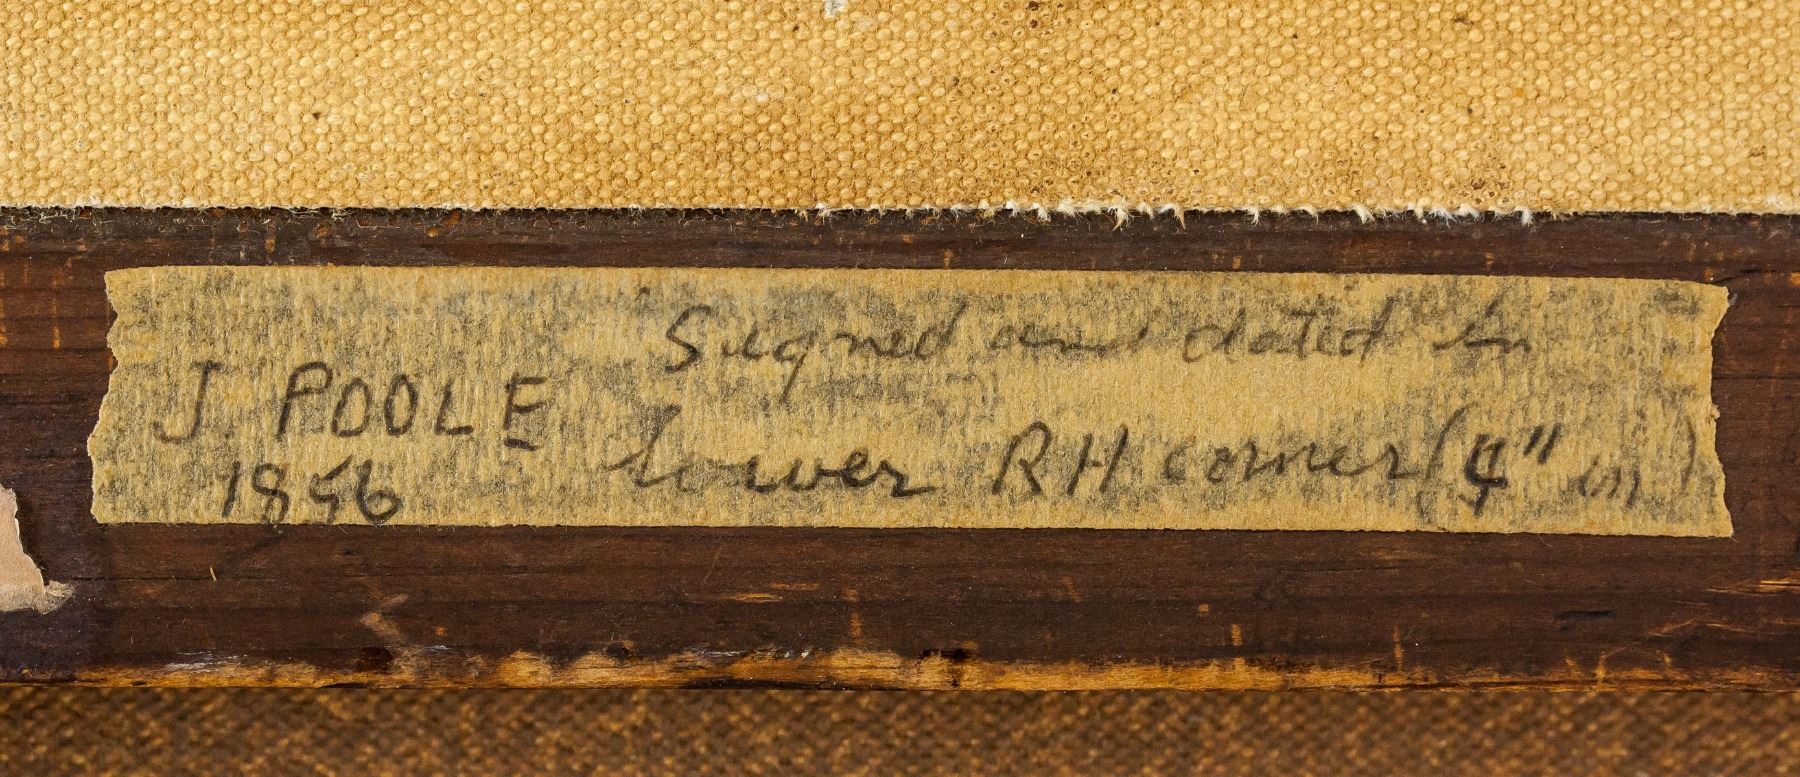 J POOLE
1856
Signed and dated in
lower RH corner (4" in)